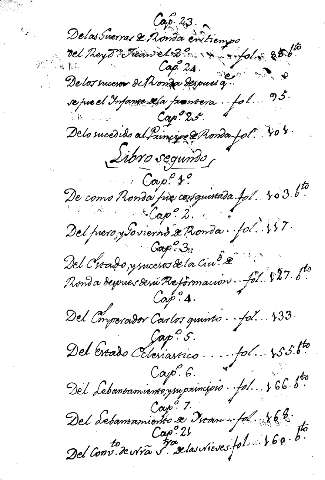 Capº. 23.
De las Guerras de Ronda en tiempo
del Rey Dn. Juan el 2º. fol. 88. bto
Capº. 24.
De los sucesos de Ronda despues qe.
se fue el Infante de la frontera. fol. 95.
Capº. 25.
De lo sucedido al Principe de Ronda. fol. 101.
Libro segundo,
Capº. 1º.
De como Ronda fue conquistada. fol. 103. bto
Capº. 2.
Del fuero, y Govierno de Ronda.. fol.. 117.
Capº. 3.
Del Estado, y sucesos de la Ciud. de
Ronda despues de su Reformacion... fol... 127. bto
Capº. 4.
Del Emperador Carlos quinto.. fol... 133.
Capº. 5.
Del Estado Eclesiastico..... fol... 155. bto
Capº. 6.
Del Lebantamiento, y su principio... fol.. 166. bto
Capº. 7.
Del Lebantamiento de Istan.. fol.. 168.
Capº. 21
Del Convto. de Nra. Sra. de las Nieves. fol.. 160. bto